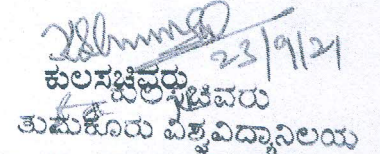 23/9/21
ಕುಲಸಚಿವರು
ಕುಲಸಚಿವರು
ತುಮಕೂರು ವಿಶ್ವವಿದ್ಯಾನಿಲಯ